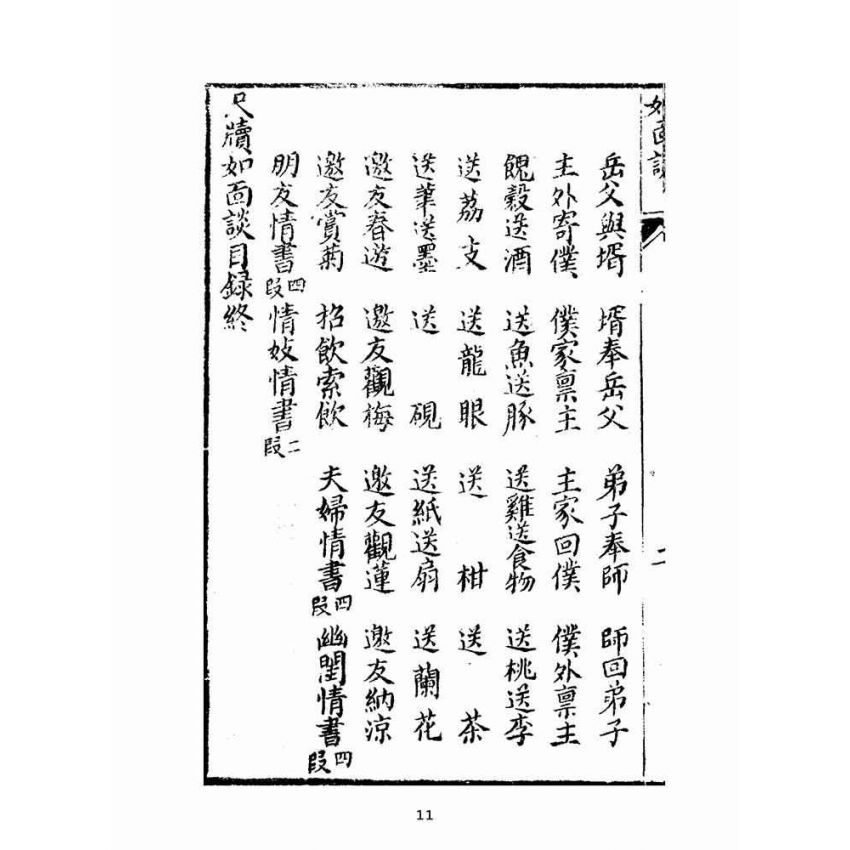 如面談
二
岳父與壻 壻奉岳父 弟子奉師 師回弟子
主外寄僕 僕家禀主 主家回僕 僕外禀主
餽穀送酒 送魚送豚 送雞送食物 送桃送李
送荔支 送龍眼 送柑 送茶
送筆送墨 送硯 送紙送扇 送蘭花
邀友春遊 邀友觀梅 邀友觀蓮 邀友納涼
邀友賞菊 招飲索飲 夫婦情書四段 幽閨情書四段
朋友情書四段 情妓情書二段
尺牘如面談目録終
11